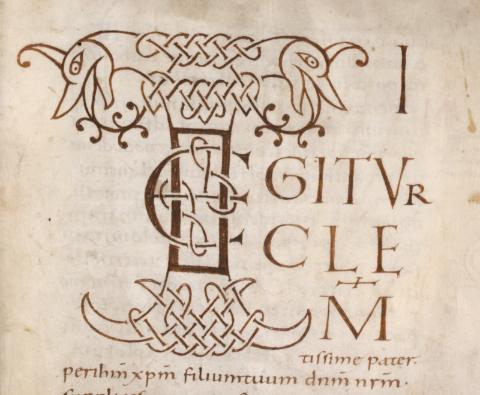 TE I
GITVR
CLE
M̄
tissime pater·
perihm̄ xpm̄ filiumtuum dnm̄ nrm̄·